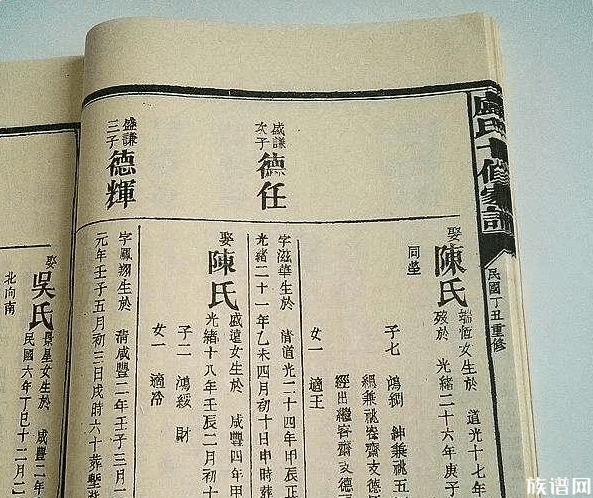 盧氏十修家譜
民國丁丑重修
娶陳氏
瑞恆女生於 道光十七年
歿於 光緒二十六年庚子
同塋
子七 鴻網 紳兼祧五
經出繼容齋支德
女一 適王
盛謙次子德任
字滋華生於 清道光二十四年甲辰正
光緒二十一年乙未四月初十日申時葬
娶陳氏
盛遠女生於 咸豐四年甲
光緒十八年壬辰二月初十
子二 鴻綏 財
女一 適冷
盛謙三子德輝
字鳳翔生於 清咸豐二年壬子三月
元年壬子五月初三日戌時六十葬墊
娶吳氏
星女生於 咸豐二年
民國六年丁巳十二月二
北向南
族谱网